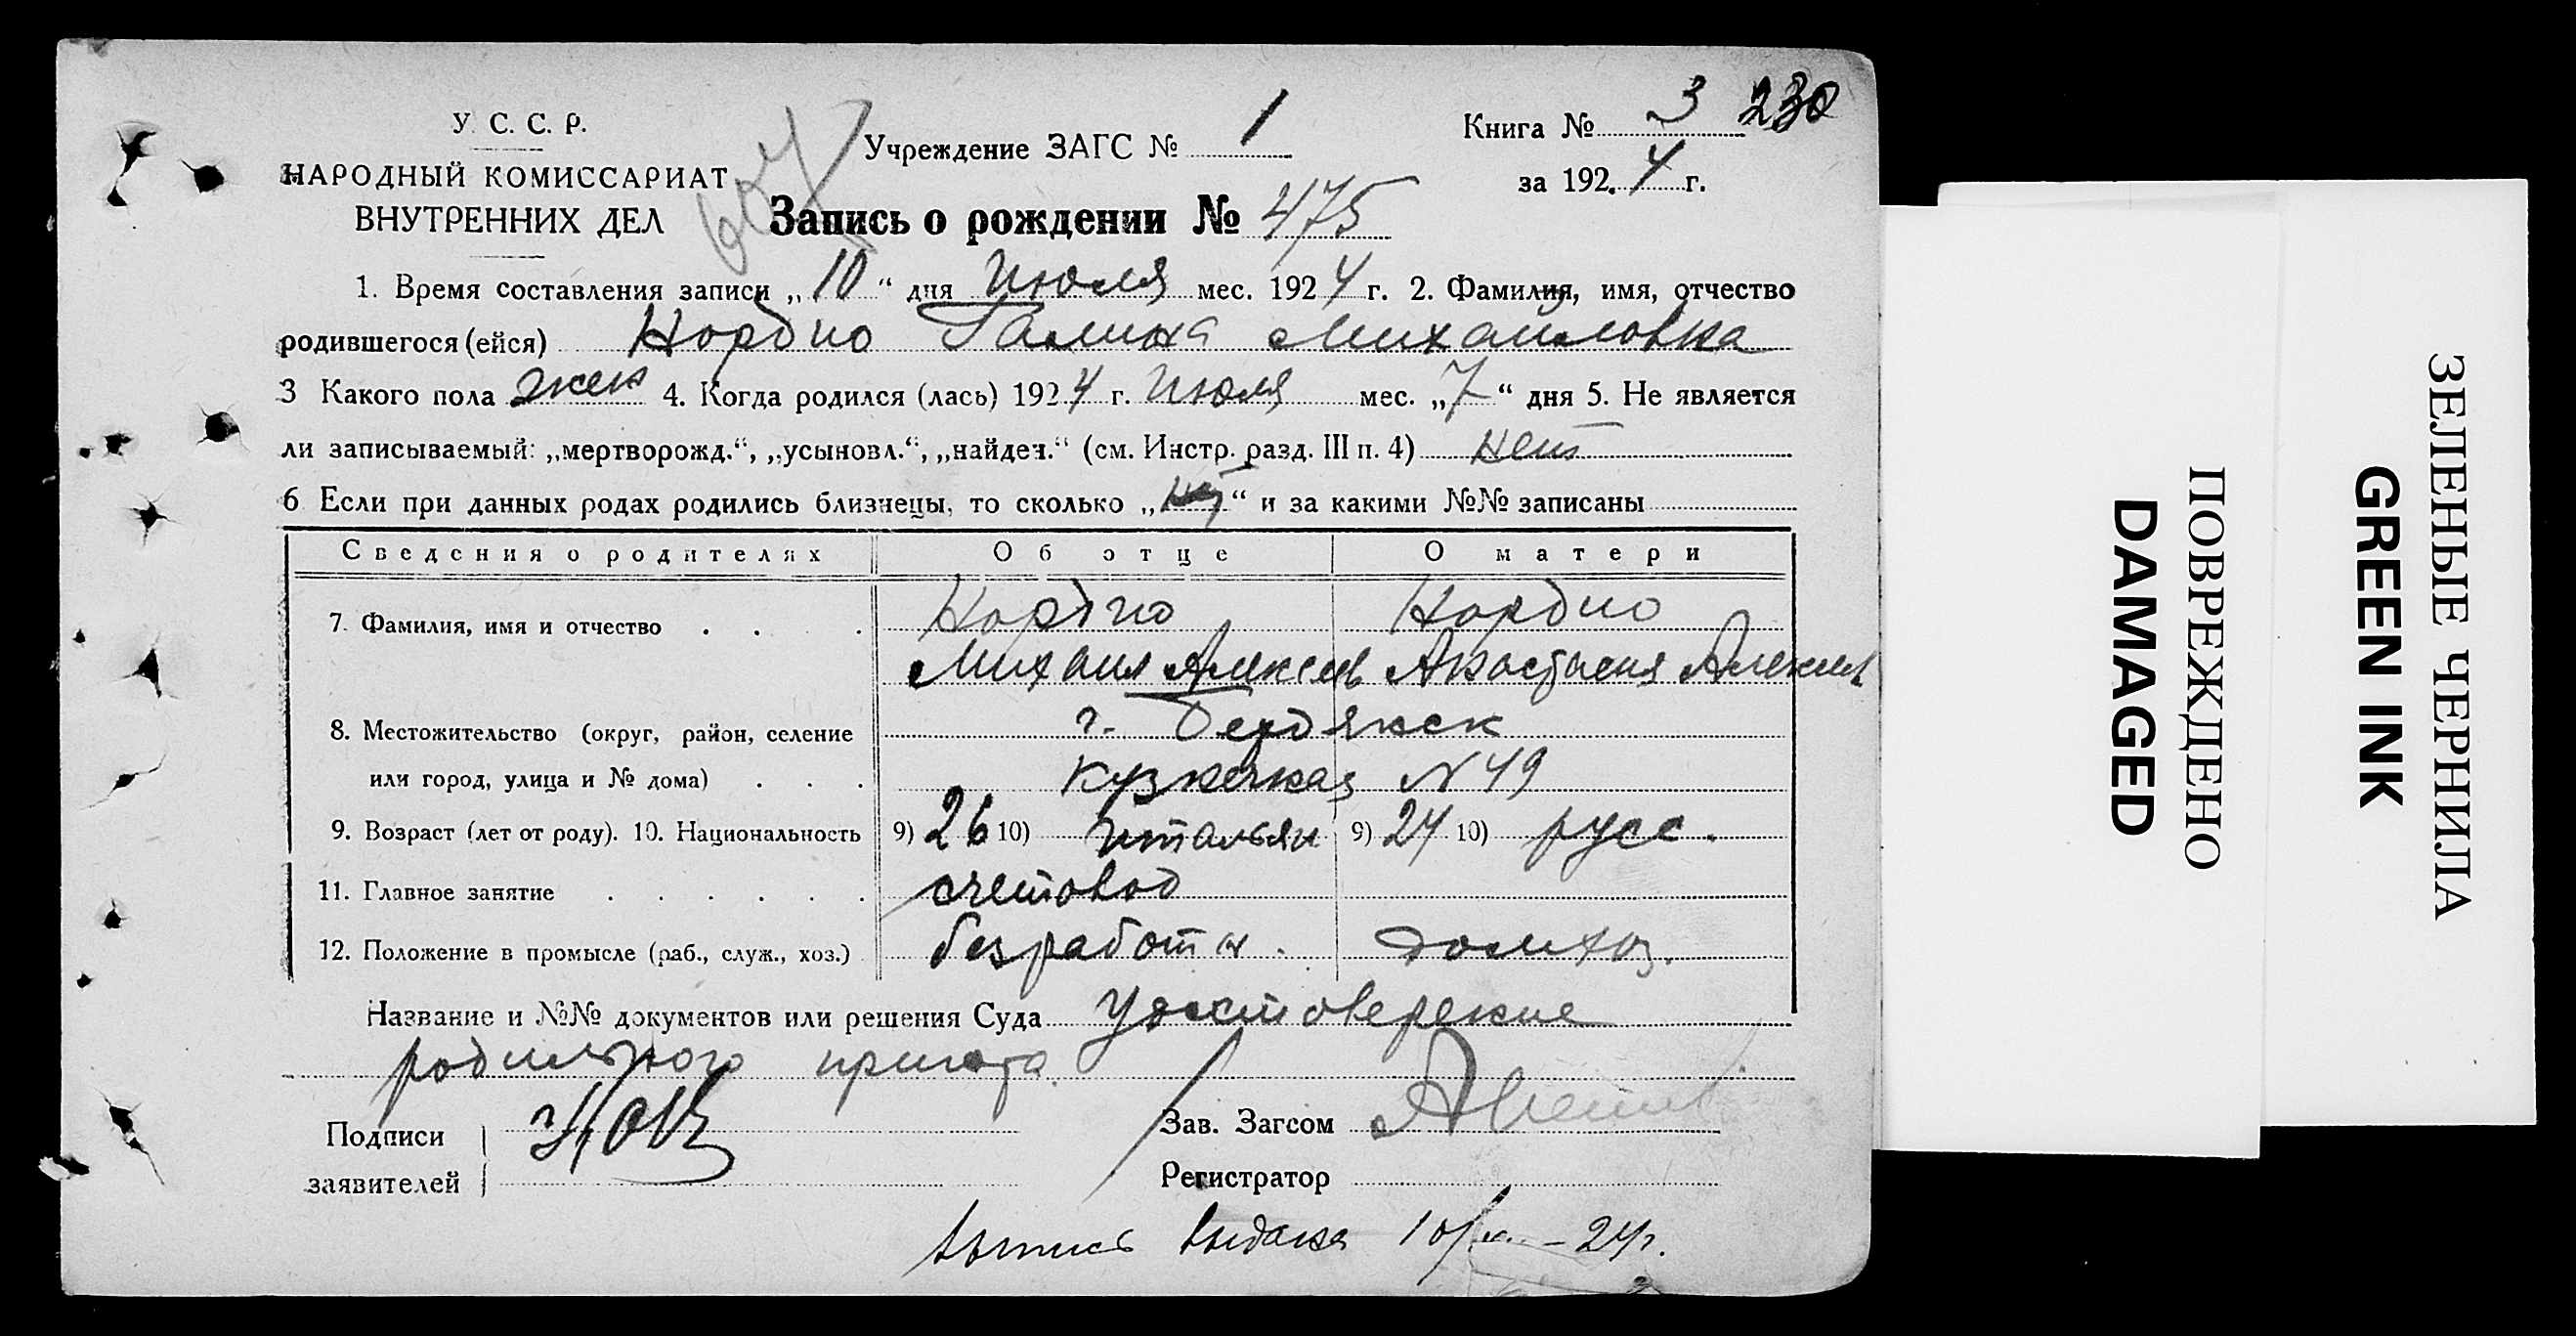 У. С. С. Р.
НАРОДНЫЙ КОМИССАРИАТ
ВНУТРЕННИХ ДЕЛ
Учреждение ЗАГС № 1
Книга № 3 230
за 192.4 г.
Запись о рождении № 475
1. Время составления записи „10“ дня Июля мес. 1924 г. 2. Фамилия, имя, отчество
родившегося (ейся) Нордио Галина Михайловна
3 Какого пола жен 4. Когда родился (лась) 1924 г. Июля мес. „7“ дня 5. Не является
ли записываемый: „мертворожд.“, „усыновл.“, „найден.“ (см. Инстр. разд. III п. 4) нет
6 Если при данных родах родились близнецы, то сколько „нет“ и за какими №№ записаны
Сведения о родителях Об отце О матери
7. Фамилия, имя и отчество . . . . Нордио Нордио
Михаил Алексеев Анастасия Алексеев
8. Местожительство (округ, район, селение г. Бердянск
или город, улица и № дома) . . . Кузнечная N 49
9. Возраст (лет от роду). 10. Национальность 9) 26 10) итальян 9) 24 10) русс.
11. Главное занятие . . . . . . счетовод
12. Положение в промысле (раб., служ., хоз.) безработн. домхоз.
Название и №№ документов или решения Суда Удостоверение
родильного приюта.
Подписи
заявителей
Зав. Загсом
Регистратор
выпись выдана 10/ – 24г.
ПОВРЕЖДЕНО
DAMAGED
ЗЕЛЕНЫЕ ЧЕРНИЛА
GREEN INK